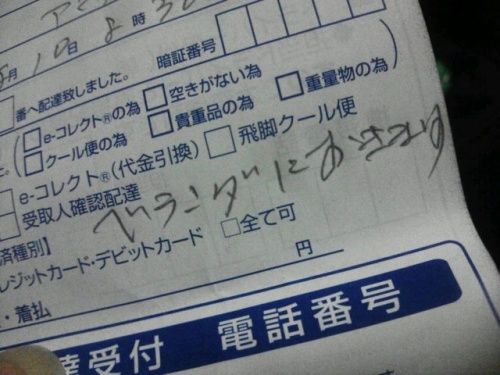 月10日8時3
暗証番号
番へ配達致しました。
□e-コレクト®の為 □空きがない為 □重量物の為
□クール便の為 □貴重品の為
□e-コレクト®(代金引換) □飛脚クール便
□受取人確認配達
ベランダにおきます
済種別】
レジットカード・デビットカード □全て可
円
・着払
達受付 電話番号